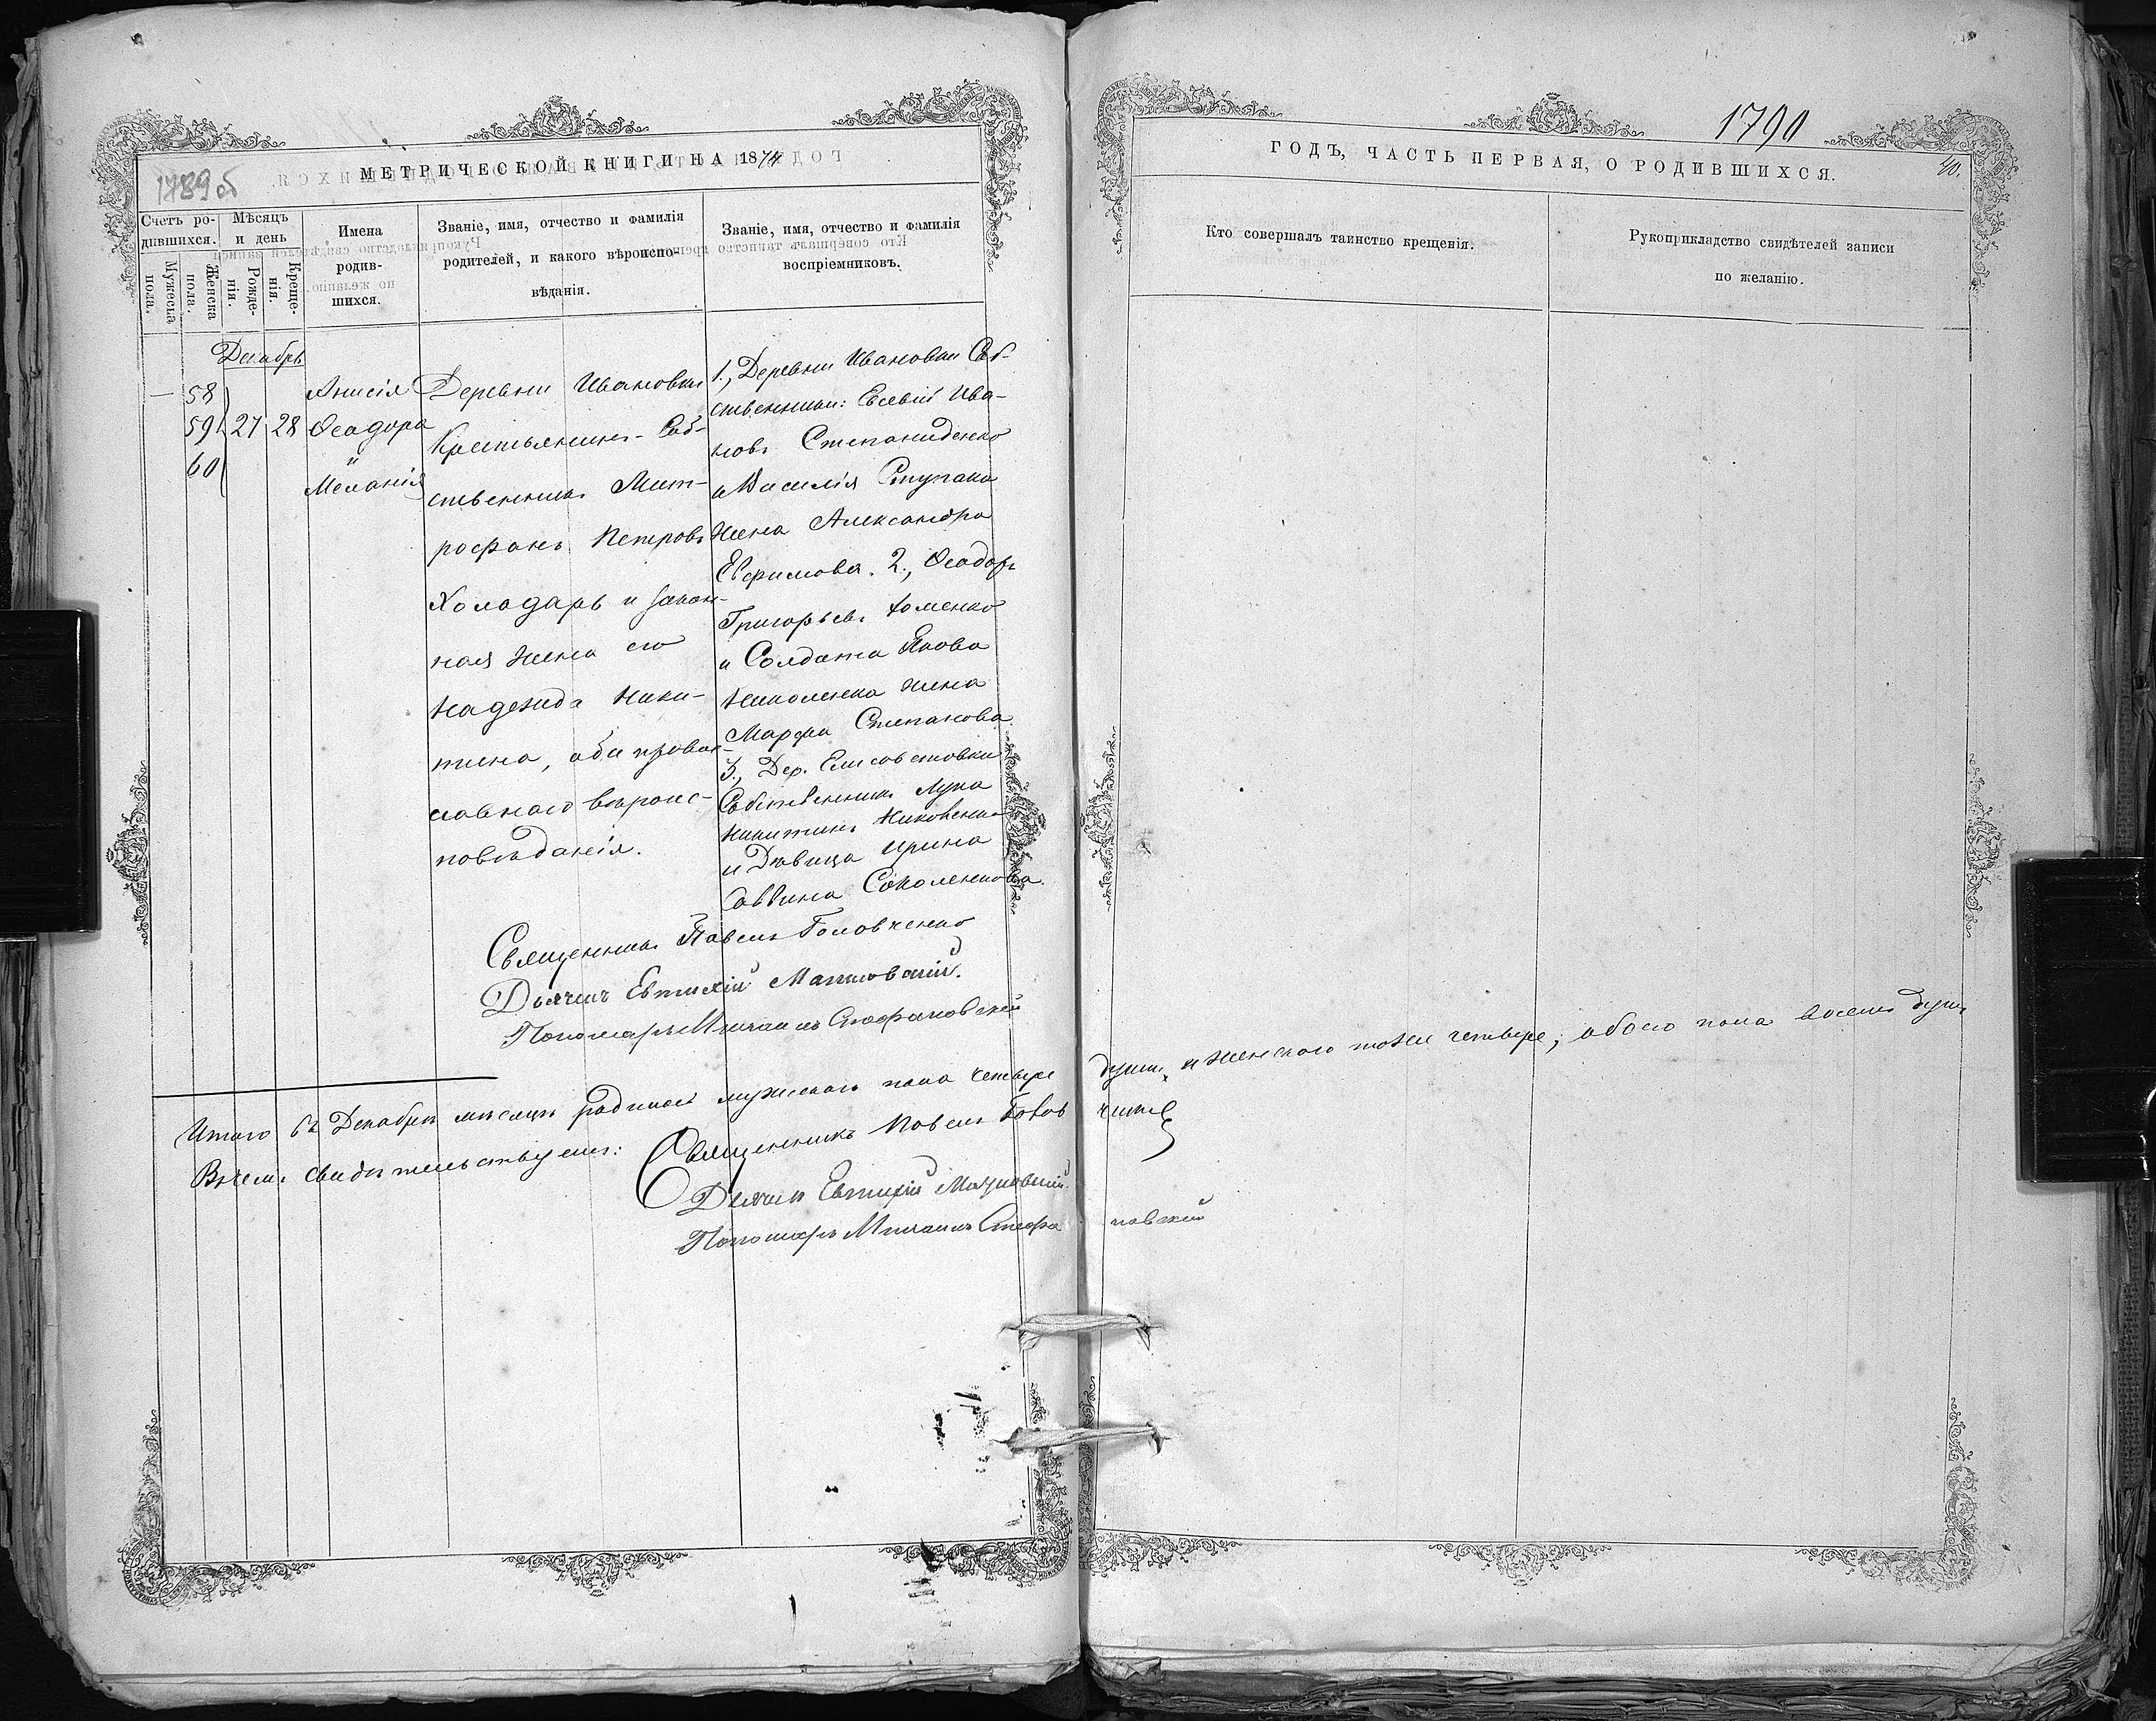 МЕТРИЧЕСКОЙ КНИГИ НА 1874
1789 об
Счетъ ро-
дившихся.
Мужеска
пола.
Женска
пола.
Мѣсяцъ
и день
Рожде-
нія.
Креще-
нія.
Имена
родив-
шихся.
Званіе, имя, отчество и фамилія
родителей, и какого вѣроиспо-
вѣданія.
Званіе, имя, отчество и фамилія
воспріемниковъ.
Декабрь
— 58
59 27 28
60
Анисія
Ѳеодора
и
Меланія
Деревни Ивановки
Крестьянинъ-Соб-
ственникъ Мит-
рофанъ Петровъ
Холодарь и закон-
ная жена его
Надежда Ники-
тина, оба право-
славнаго вѣроис-
повѣданія.
1., Деревни Ивановки Соб-
ственники: Евсевій Ива-
новъ Степаниденко
и Василія Ступака
жена Александра
Евфимова. 2., Ѳеодоръ
Григорьевъ Хоменко
и Солдата Якова
Николенка жена
Марфа Степанова.
3., Дер. Елисаветовки
Собственникъ Лука
Никитинъ
и Дѣвица Ирина
Саввина Соколенкова.
Священникъ Павелъ Головченко
Дьячекъ Евтихій
Пономарь Михаилъ Стефановскій
Итого въ Декабрѣ мѣсяцѣ родилось мужескаго пола четыре душъ, и женскаго тоже четыре, обоего пола восемь душъ
Въ чемъ свидѣтельствуемъ: Священникъ Павелъ Головченко
Дьячекъ Евтихій
Пономарь Михаилъ Стефановскій
1790
40.
ГОДЪ, ЧАСТЬ ПЕРВАЯ, О РОДИВШИХСЯ.
Кто совершалъ таинство крещенія.
Рукоприкладство свидѣтелей записи
по желанію.